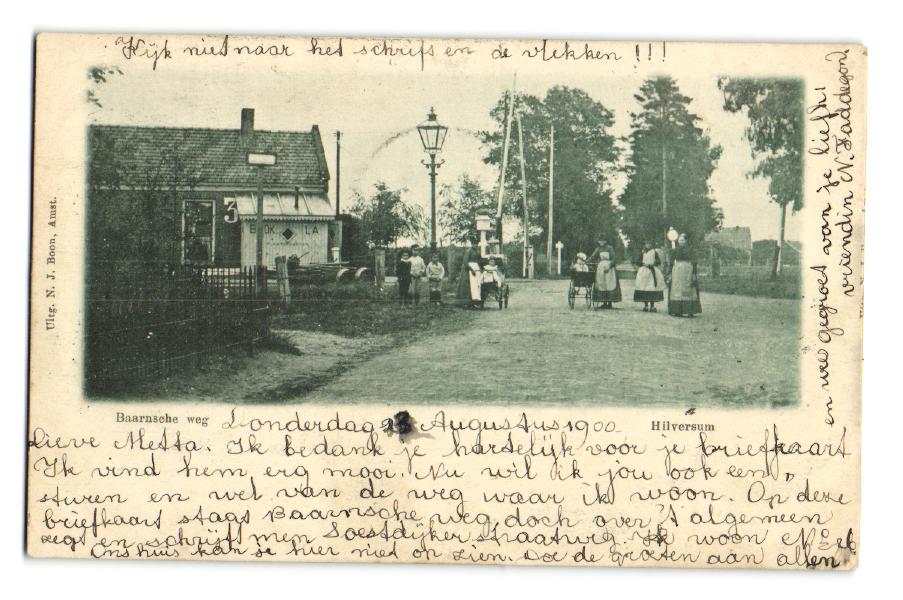 Kijk niet naar het schrift en de vlekken !!!
en wee gegroet van je liefh.
vriendin N. Faddegon.
Uitg. N. J. Boon, Amst.
3
Baarnsche weg
Hilversum
Donderdag Augustus 1900.
Lieve Metta. Ik bedank je hartelijk voor je briefkaart
Ik vind hem erg mooi. Nu wil ik jou ook een
sturen en wel van de weg waar ik woon. Op deze
briefkaart staat Baarnsche weg, doch over 't algemeen
zegt en schrijft men Soestdijker straatweg. Ik woon No
Ons huis kan je hier niet op zien. Doe de groeten aan allen